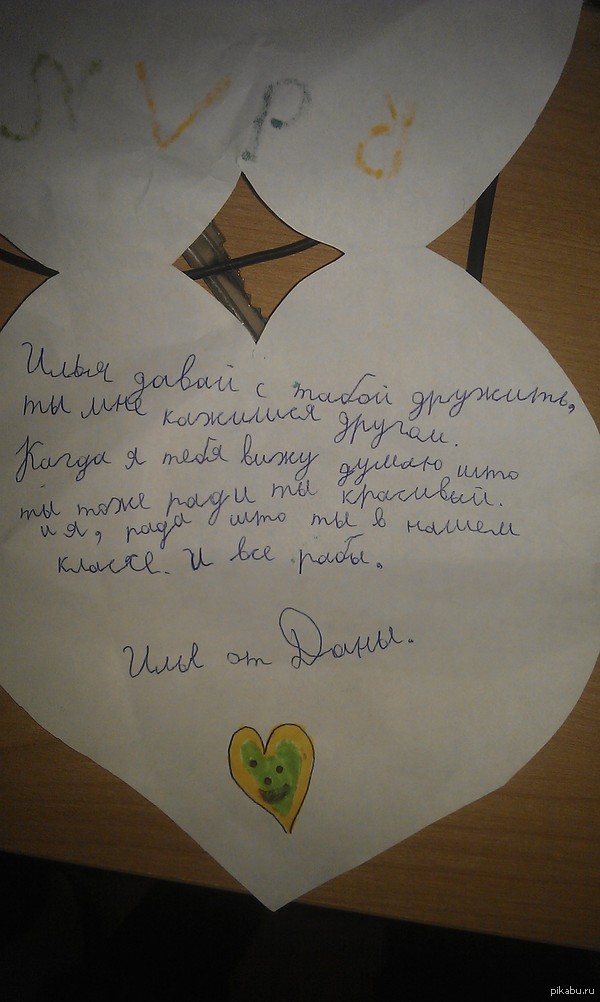 Илья давай с табой дружить,
ты мне кажишся другам.
Кагда я тебя вижу думаю што
ты тоже ради ты красивый.
и я, рада што ты в нашем
класке. И все рабы.
Илье от Даны.
pikabu.ru